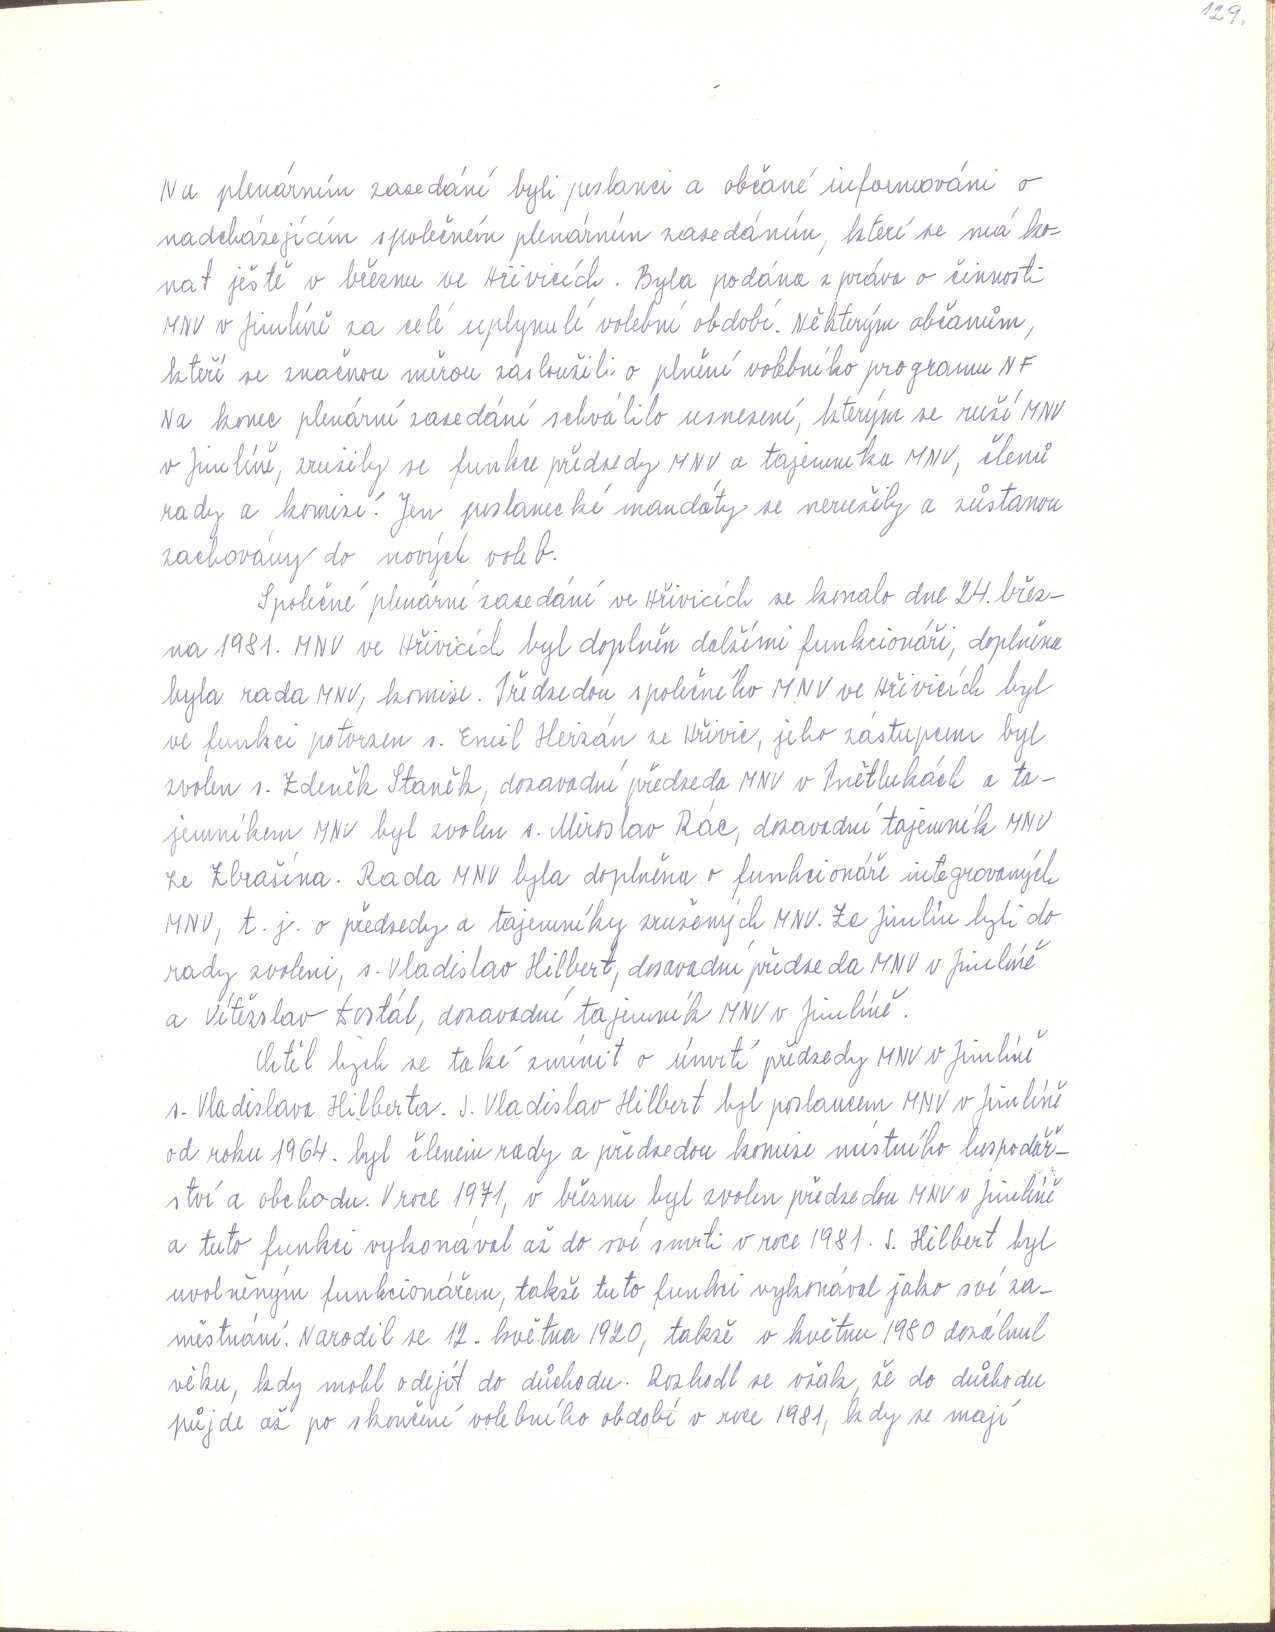 129.
Na plenárním zasedání byli poslanci a občané informováni o
nadcházejícím společném plenárním zasedáním, které se má ko-
nat ještě v březnu ve Hřivicích. Byla podána zpráva o činnosti
MNV v Jimlíně za celé uplynulé volební období. Některým občanům,
kteří se značnou měrou zasloužili o plnění volebního programu NF
Na konec plenární zasedání schválilo usnesení, kterým se ruší MNV
v Jimlíně, zrušily se funkce předsedy MNV a tajemníka MNV, členů
rady a komisí. Jen poslanecké mandáty se nerušily a zůstanou
zachovány do nových voleb.
Společné plenární zasedání ve Hřivicích se konalo dne 24. břez-
na 1981. MNV ve Hřivicích byl doplněn dalšími funkcionáři, doplněna
byla rada MNV, komise. Předsedou společného MNV ve Hřivicích byl
ve funkci potvrzen s. Emil Herzán ze Hřivic, jeho zástupcem byl
zvolen s. Zdeněk Staněk, dosavadní předseda MNV v Pnětlukách a ta-
jemníkem MNV byl zvolen s. Miroslav Rác, dosavadní tajemník MNV
ze Zbrašína. Rada MNV byla doplněna o funkcionáře integrovaných
MNV, t. j. o předsedy a tajemníky zrušených MNV. Za Jimlín byli do
rady zvoleni, s. Vladislav Hilbert, dosavadní předseda MNV v Jimlíně
a Vítězslav Dostál, dosavadní tajemník MNV v Jimlíně.
Chtěl bych se také zmínit o úmrtí předsedy MNV v Jimlíně
s. Vladislava Hilberta. S. Vladislav Hilbert byl poslancem MNV v Jimlíně
od roku 1964. byl členem rady a předsedou komise místního hospodář-
ství a obchodu. V roce 1971, v březnu byl zvolen předsedou MNV v Jimlíně
a tuto funkci vykonával až do své smrti v roce 1981. S. Hilbert byl
uvolněným funkcionářem, takže tuto funkci vykonával jako své za-
městnání. Narodil se 12. května 1920, takže v květnu 1980 dosáhnul
věku, kdy mohl odejít do důchodu. Rozhodl se však, že do důchodu
půjde až po skončení volebního období v roce 1981, kdy se mají